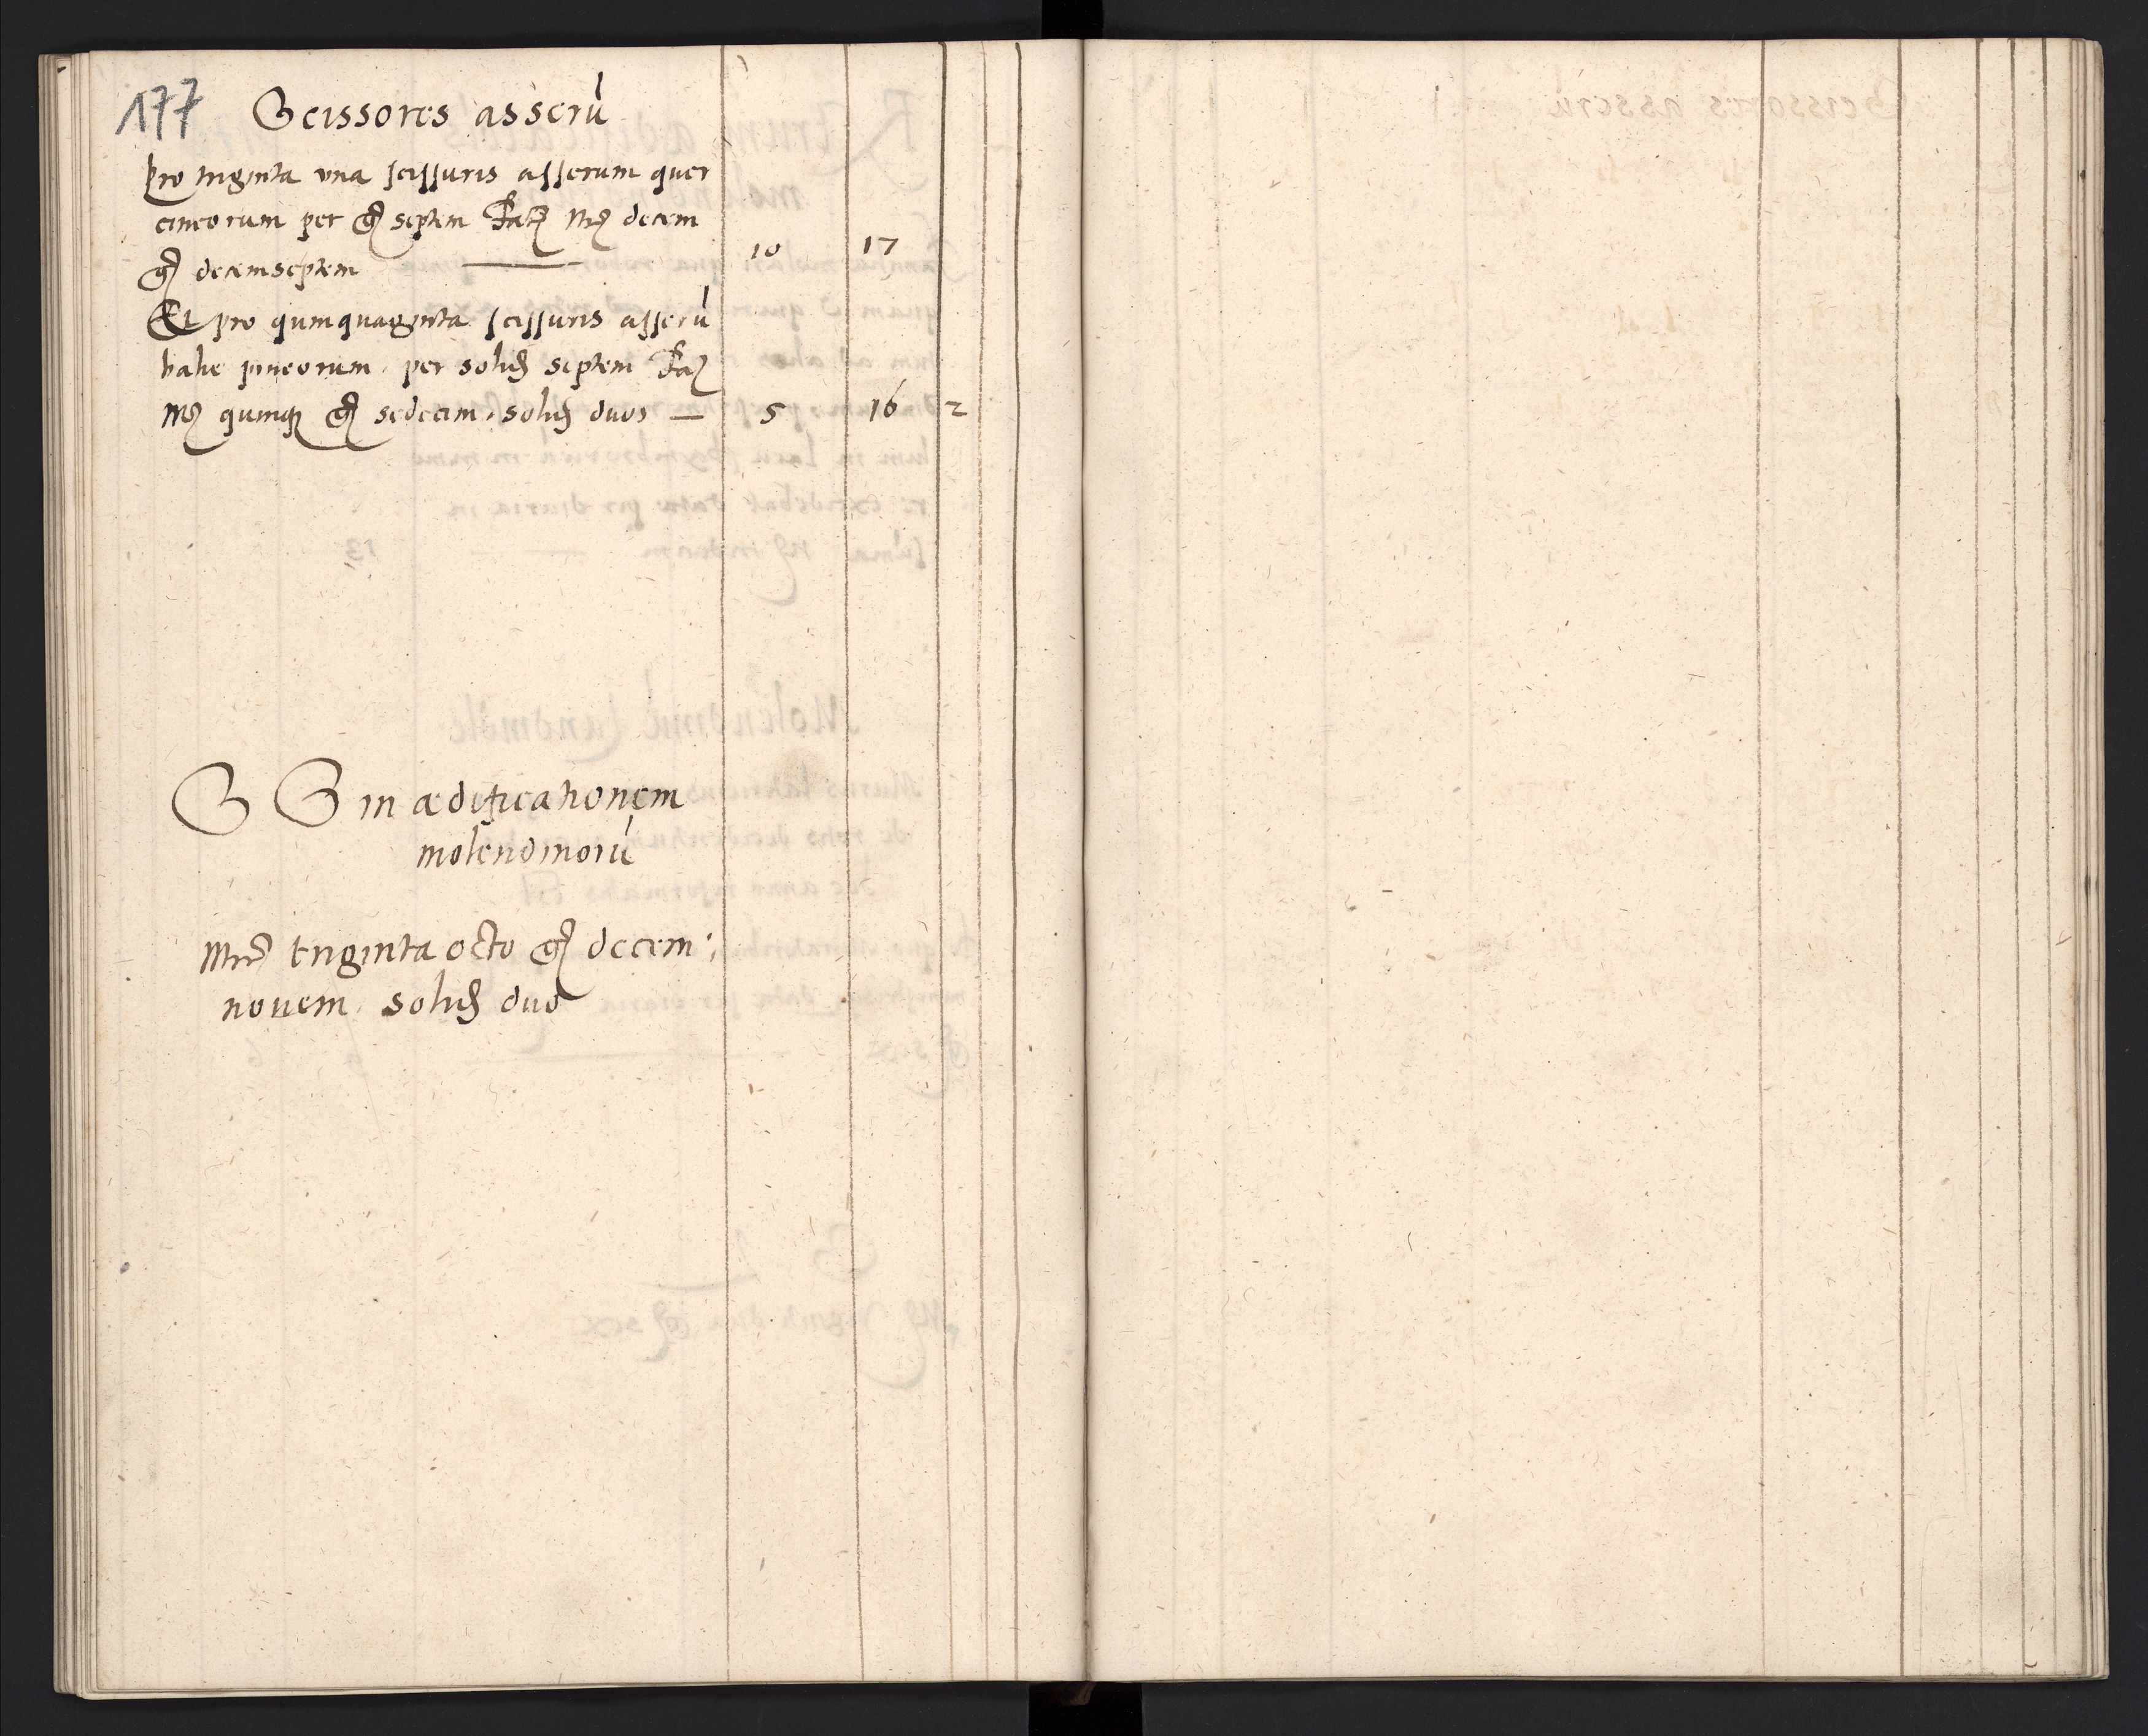 177 Scissores asserũ
pro triginta una scissuris asserum quer
cineorum per gͬ septem Facͭ Mrͨ decem
gͬ decemseptem — 10 17
Et pro quinquaginta scissuris asserũ
valie pineorum. per solid septem Facͭ
Mrͨ quinqꝫ gͬ sedecim. solid duos — 5 16 2
S S in ædificationem
molendinorũ
Mrͨ triginta octo gͬ decem:
novem. solid duo